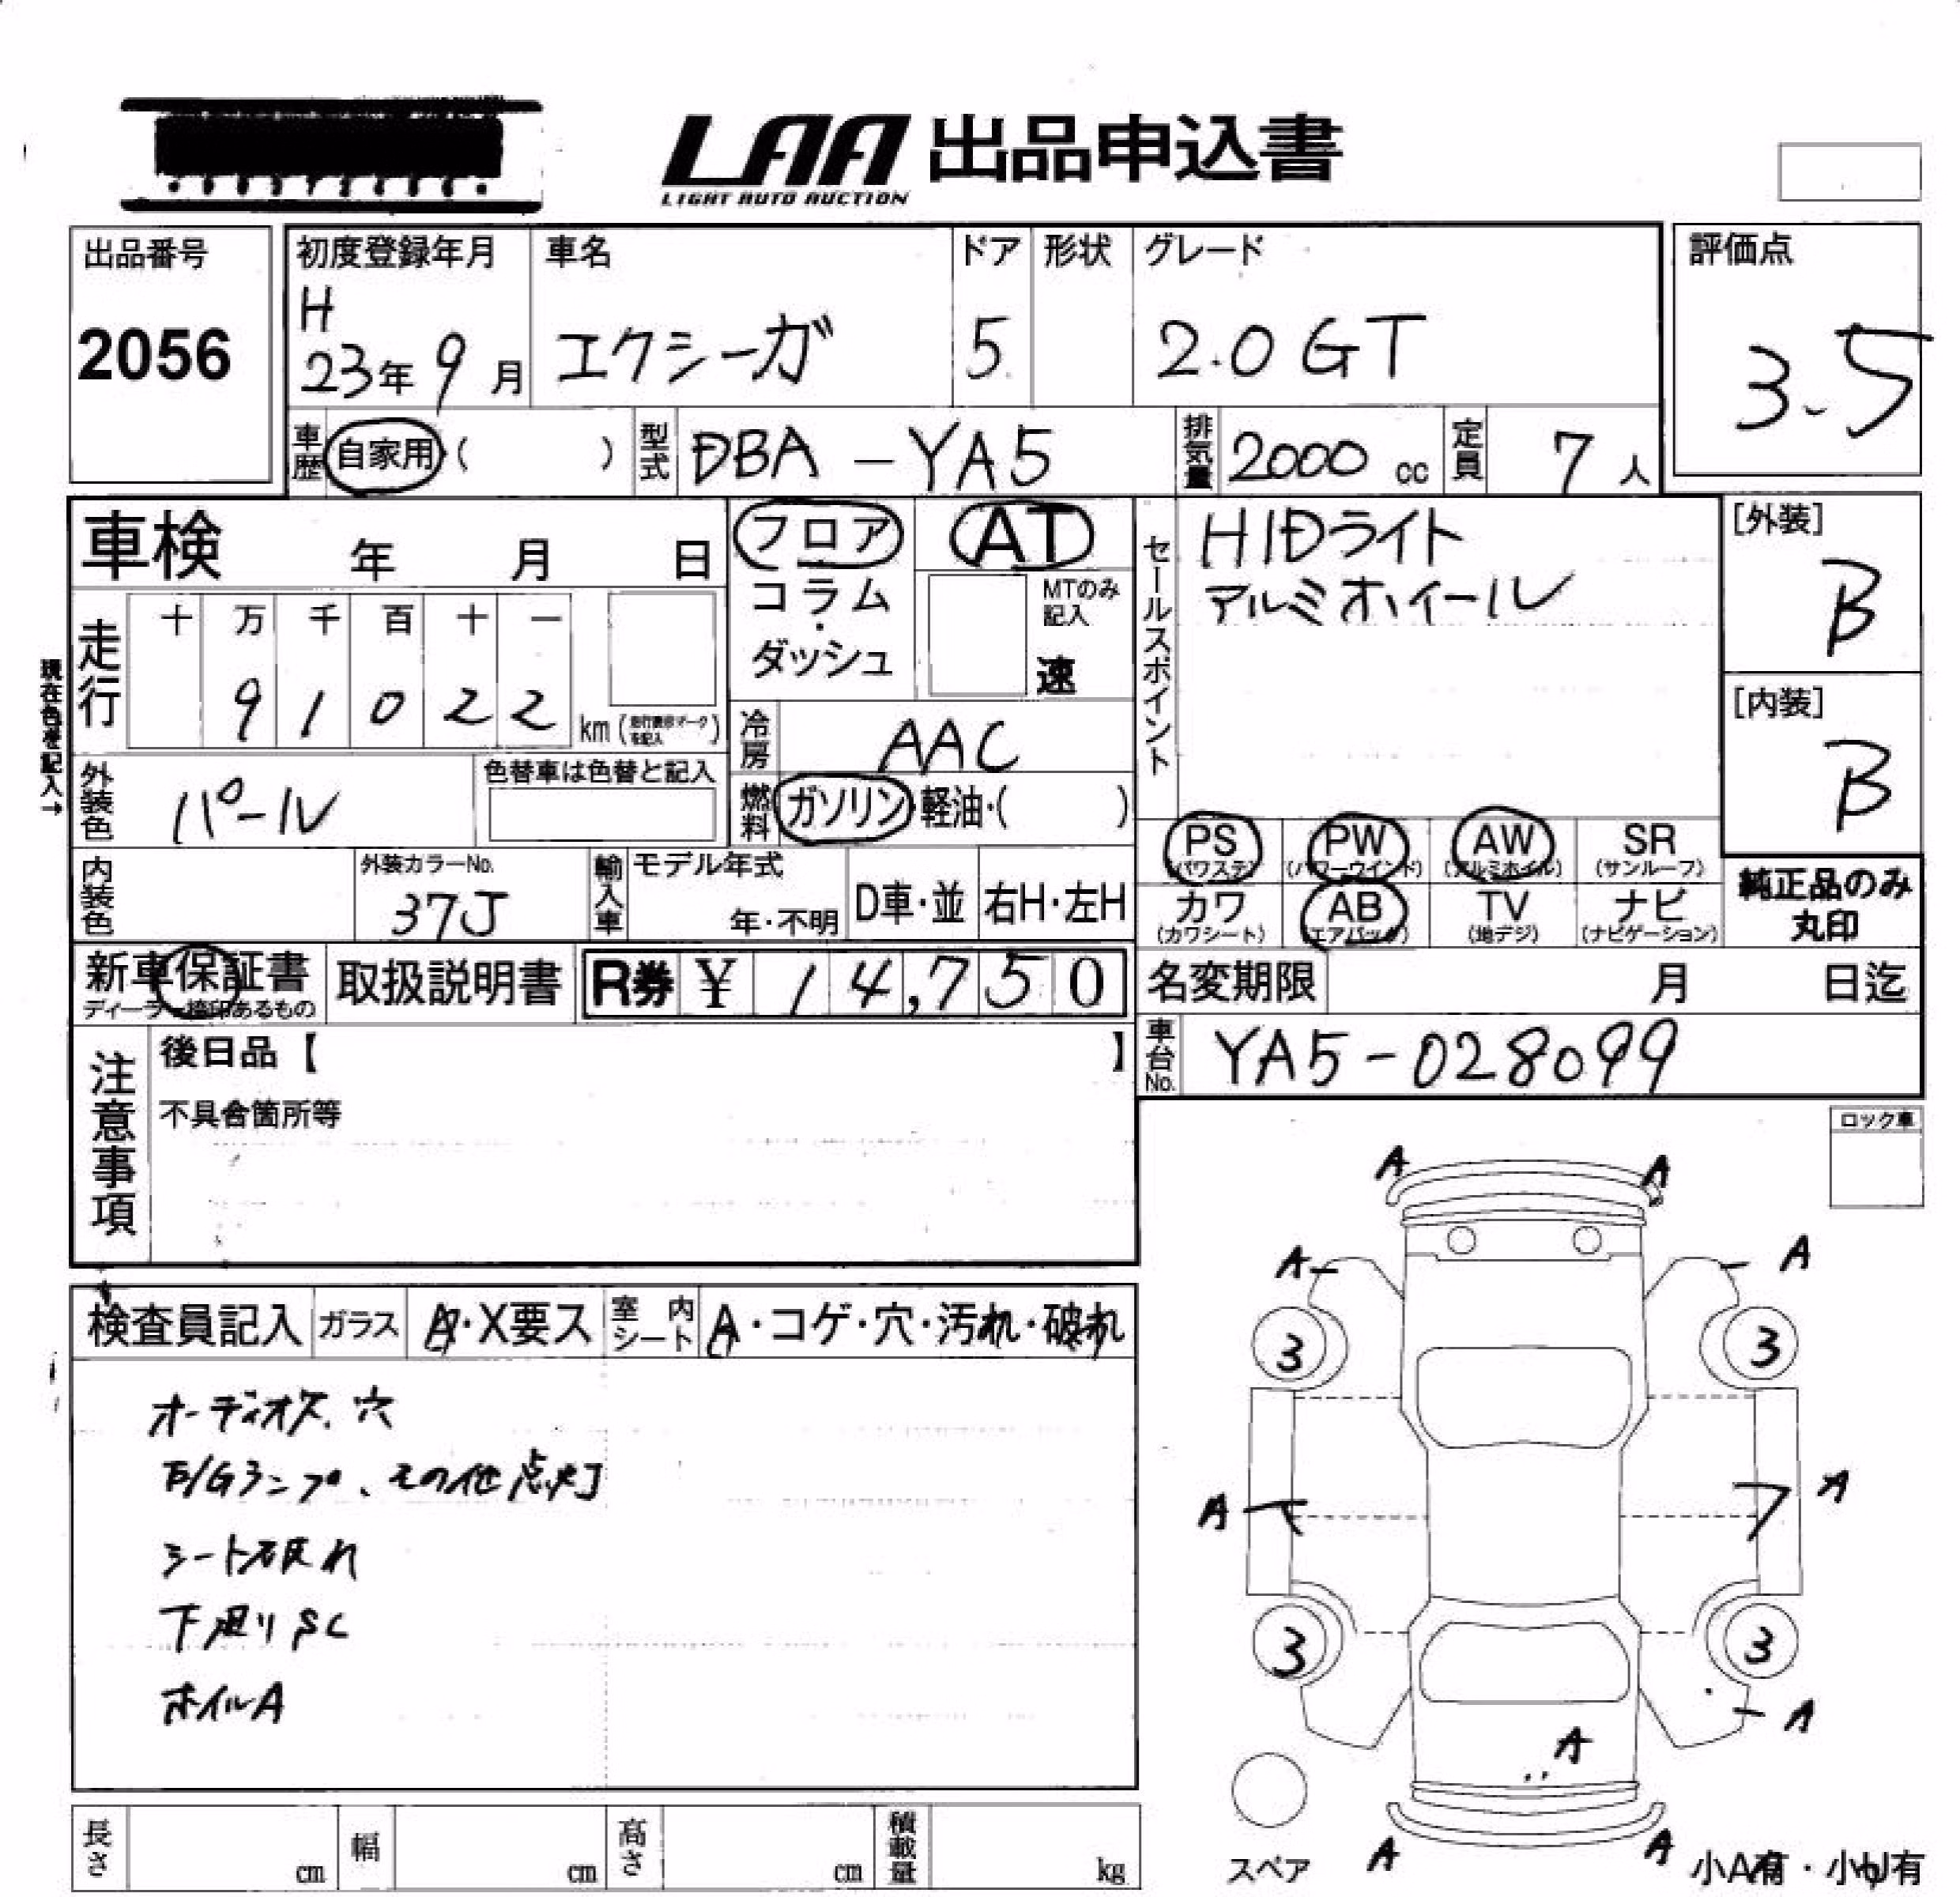 LAA 出品申込書
LIGHT AUTO AUCTION
出品番号
2056
初度登録年月
H
23年 9月
車名
エクシーガ
ドア
5
形状
グレード
2.0 GT
評価点
3.5
車歴 自家用・( )
型式 DBA-YA5
排気量 2000 cc
定員 7人
車検 年 月 日
フロア
コラム
・
ダッシュ
AT
MTのみ記入
速
セールスポイント
HIDライト
アルミホイール
[外装]
B
[内装]
B
現在色を記入→
走行
十 万 千 百 十 一
9 1 0 2 2 km
冷房 AAC
外装色 パール
色替車は色替と記入
燃料 ガソリン・軽油・( )
PS (パワステ)
PW (パワーウインド)
AW (アルミホイル)
SR (サンルーフ)
カワ (カワシート)
AB (エアバッグ)
TV (地デジ)
ナビ (ナビゲーション)
純正品のみ
丸印
内装色
外装カラーNo.
37J
輸入車
モデル年式
年・不明
D車・並
右H・左H
新車保証書
ディーラー捺印あるもの
取扱説明書
R券 ¥ 14,750
名変期限 月 日迄
車台No. YA5-028099
注意事項
後日品【 】
不具合箇所等
ロック車
検査員記入
ガラス A・X要ス
室内シート A・コゲ・穴・汚れ・破れ
オーディオ欠、穴
E/Gランプ、その他点灯
シート破れ
下廻りSC
ホイルA
A A
A A
3 3
A A
3 3
A
A
A A
スペア
小A有・小U有
長さ cm
幅 cm
高さ cm
積載量 kg